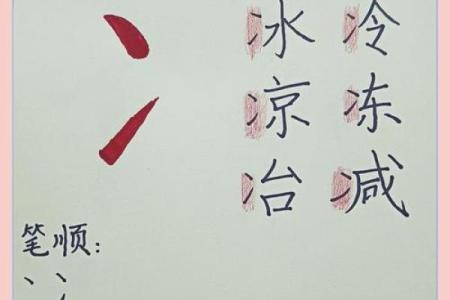 冫
冰 冷
凉 冻
冶 减
笔顺：
丶 冫